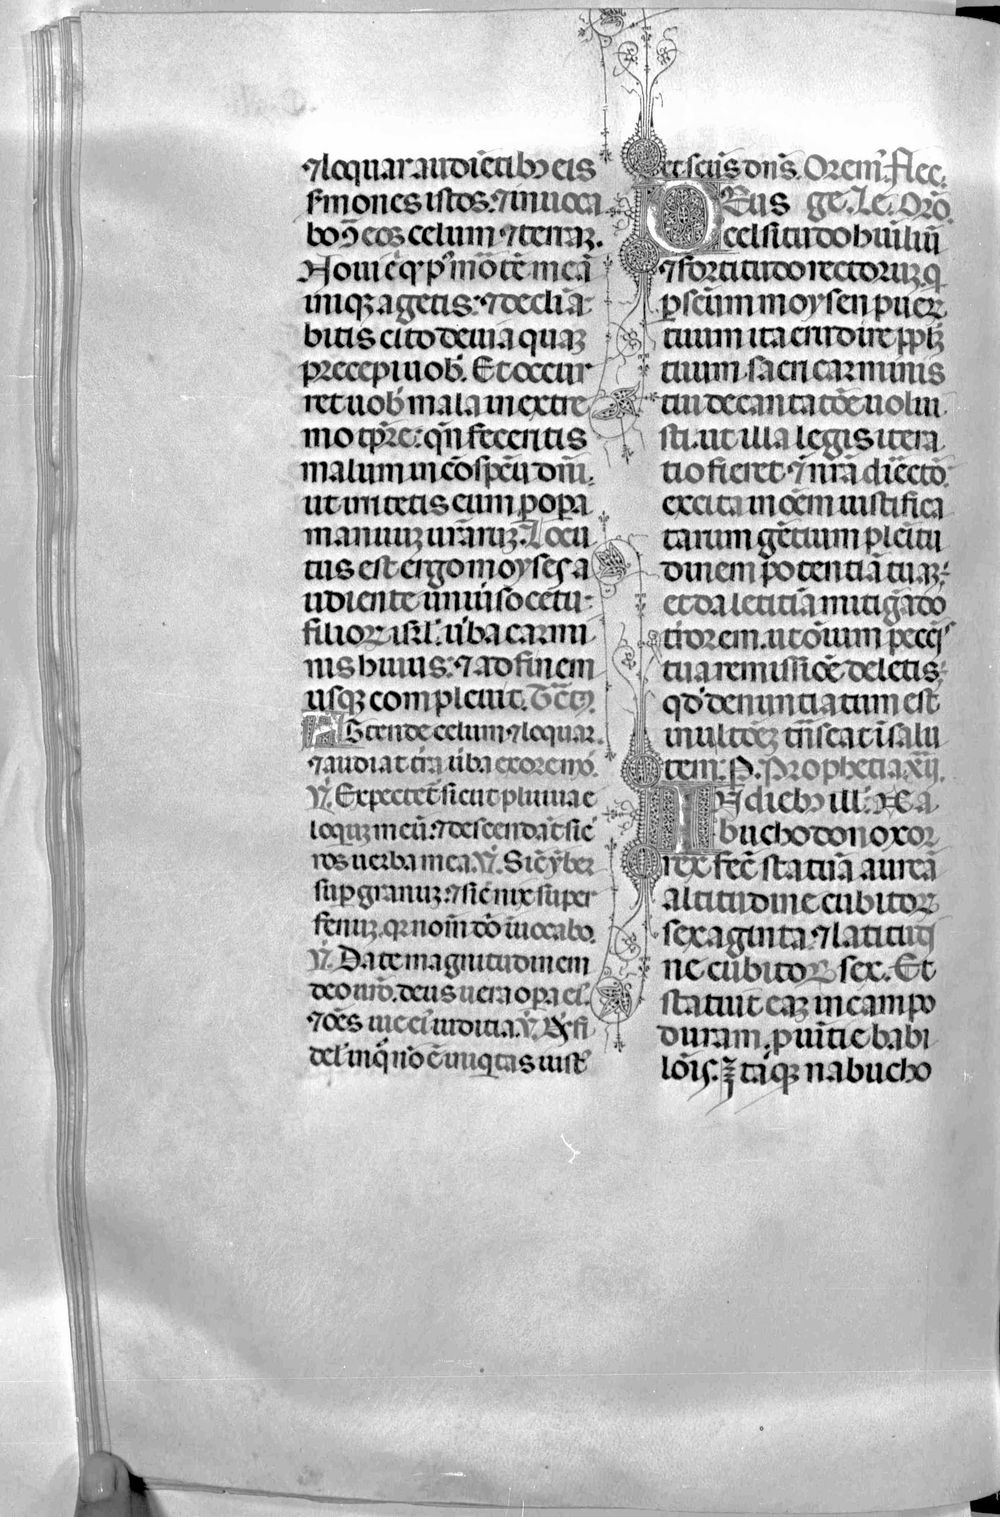 ⁊loquar audiẽtibꝫ eis
ẜmones istos: ⁊inuoca
bo ꝯ eos celum ⁊terraꝫ.
Noui .n. qꝫ p' mõtẽ meã
iniqꝫ agetis: ⁊decli͂a
bitis cito de uia quaꝫ
precepi uob'. Et occur
ret uob' mala in extre
mo tp̃re: qñ feceritis
malum in cõspẽu dñi.
ut irritetis eum p opa
manuuꝫ ur̃aruꝫ. Locu
tus est ergo moyses a
udiente uniũso cetu
filioꝝ isrl': ũba carmi
nis huius: ⁊ad finem
usqꝫ compleuit. Tr̃ctꝫ.
Attende celum ⁊loquar.
⁊audiat tr̃a ũba ex ore meo.
V̓. Expectet̃ sicut pluuia e
loquiꝫ meũ: ⁊descendãt sic̃
ros uerba mea. V̓. Sic̃ ỹber
suꝑ granuꝫ: ⁊sic̃ nix super
fenuꝫ. qꝛ nom̃ dñi ĩuocabo.
V̓. Date magnitudinem
deo nr̃o. deus uera oꝑa ei'.
⁊oẽs uie ei' iudicia. V̓. Ds̃ fi
del' in q̊ nõ ẽ iniqͥtas iust'
et scũs dñs. Orem'. Flec.
Deus ge. Le. Oro͂.
celsitudo huiliũ
⁊fortitudo rectoruꝫ. q̇
ꝑ scũm moysen pueꝝ
tuum ita erudire pp̃lꝫ
tuum sacri carminis
tui decantatõe uolui
sti. ut illa legis itera
tio fieret ⁊ nr̃a dir̃ectõ.
excita in oẽm iustifica
tarum gẽtium pleĩtu
dinem potentiã tuaꝫ.
et da letitiã mitigãdo
t̃rorem. ut oĩum pecc̃ꝭ
tua remissiõe deletis.
qd' denunciatum est
in ultõeꝫ trãseat ĩ salu
tem. P. Prophetia. xij.
In diebꝫ ill'. Na
buchodonoxor
rex fec̃ statuã aureã
altitudine cubitoꝝ
sexaginta ⁊latitudi
ne cubitoꝝ sex. Et
statuit eaꝫ in campo
duram. ꝓuĩtie babi
lõis. Itaqꝫ nabucho